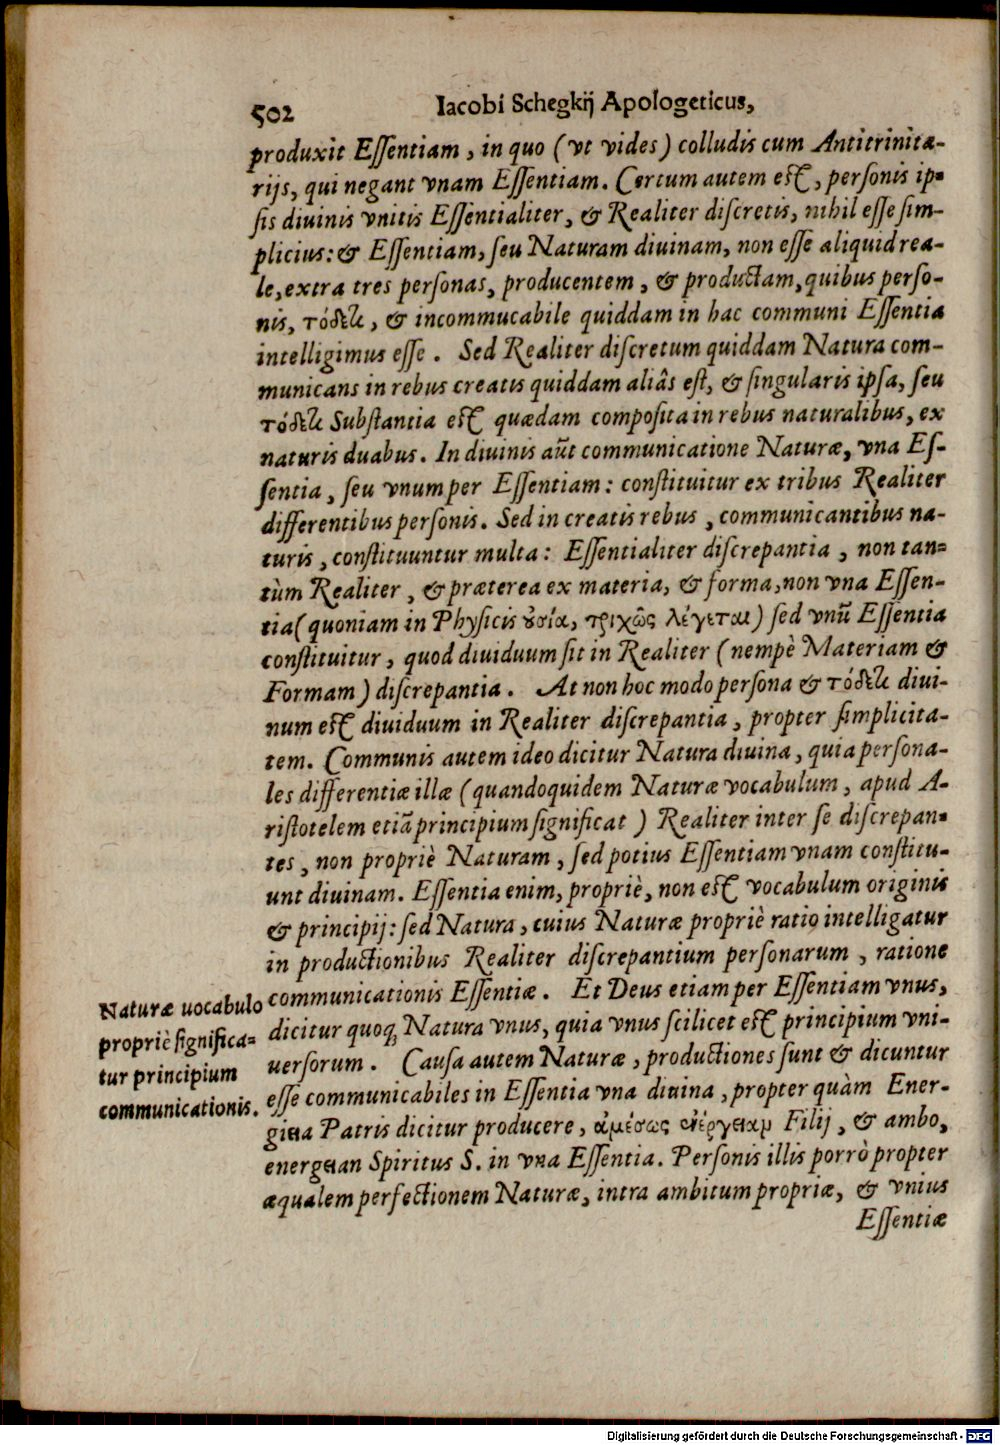 502
Iacobi Schegkij Apologeticus,
produxit Essentiam, in quo (vt vides) colludis cum Antitrinita-
rijs, qui negant vnam Essentiam. Certum autem est, personis ip-
sis diuinis vnitis Essentialiter, & Realiter discretis, nihil esse sim-
plicius: & Essentiam, seu Naturam diuinam, non esse aliquid rea-
le, extra tres personas, producentem, & productam, quibus perso-
nis, τόδε τι, & incommucabile quiddam in hac communi Essentia
intelligimus esse. Sed Realiter discretum quiddam Natura com-
municans in rebus creatis quiddam aliâs est, & singularis ipsa, seu
τόδε τι Substantia est quædam composita in rebus naturalibus, ex
naturis duabus. In diuinis aũt communicatione Naturæ, vna Es-
sentia, seu vnum per Essentiam: constituitur ex tribus Realiter
differentibus personis. Sed in creatis rebus, communicantibus na-
turis, constituuntur multa: Essentialiter discrepantia, non tan-
tùm Realiter, & præterea ex materia, & forma, non vna Essen-
tia (quoniam in Physicis ȣσία, τριχῶς λέγεται) sed vnũ Essentia
constituitur, quod diuiduum sit in Realiter (nempè Materiam &
Formam) discrepantia. At non hoc modo persona & τόδε τι diui-
num est diuiduum in Realiter discrepantia, propter simplicita-
tem. Communis autem ideo dicitur Natura diuina, quia persona-
les differentiæ illæ (quandoquidem Naturæ vocabulum, apud A-
ristotelem etiã principium significat) Realiter inter se discrepan-
tes, non propriè Naturam, sed potius Essentiam vnam constitu-
unt diuinam. Essentia enim, propriè, non est vocabulum originis
& principij: sed Natura, cuius Naturæ propriè ratio intelligatur
in productionibus Realiter discrepantium personarum, ratione
communicationis Essentiæ. Et Deus etiam per Essentiam vnus,
dicitur quoq; Natura vnus, quia vnus scilicet est principium vni-
uersorum. Causa autem Naturæ, productiones sunt & dicuntur
esse communicabiles in Essentia vna diuina, propter quàm Ener-
geia Patris dicitur producere, ἀμέσως ἐνέργειαμ Filij, & ambo,
energeian Spiritus S. in vna Essentia. Personis illis porrò propter
æqualem perfectionem Naturæ, intra ambitum propriæ, & vnius
Essentiæ
Naturæ uocabulo
propriè significa-
tur principium
communicationis.
Digitalisierung gefördert durch die Deutsche Forschungsgemeinschaft - DFG